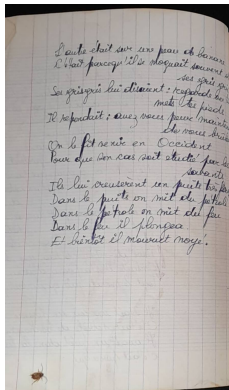 L'autre était sur une peau de banane
C'était parcequ'il se moquait souvent
ses gris gris
Ses grisgris lui disaient : regarde
mets tes pieds
Il répondit : avez vous peur
de vous
On le fit venir en Occident
Pour que son cas soit étudié par les
savants
Ils lui creusèrent un puits très
Dans le puits on mit du pétrole
Dans le pétrole on mit du feu
Dans le feu il plongea
Et bientôt il mourut noyé.